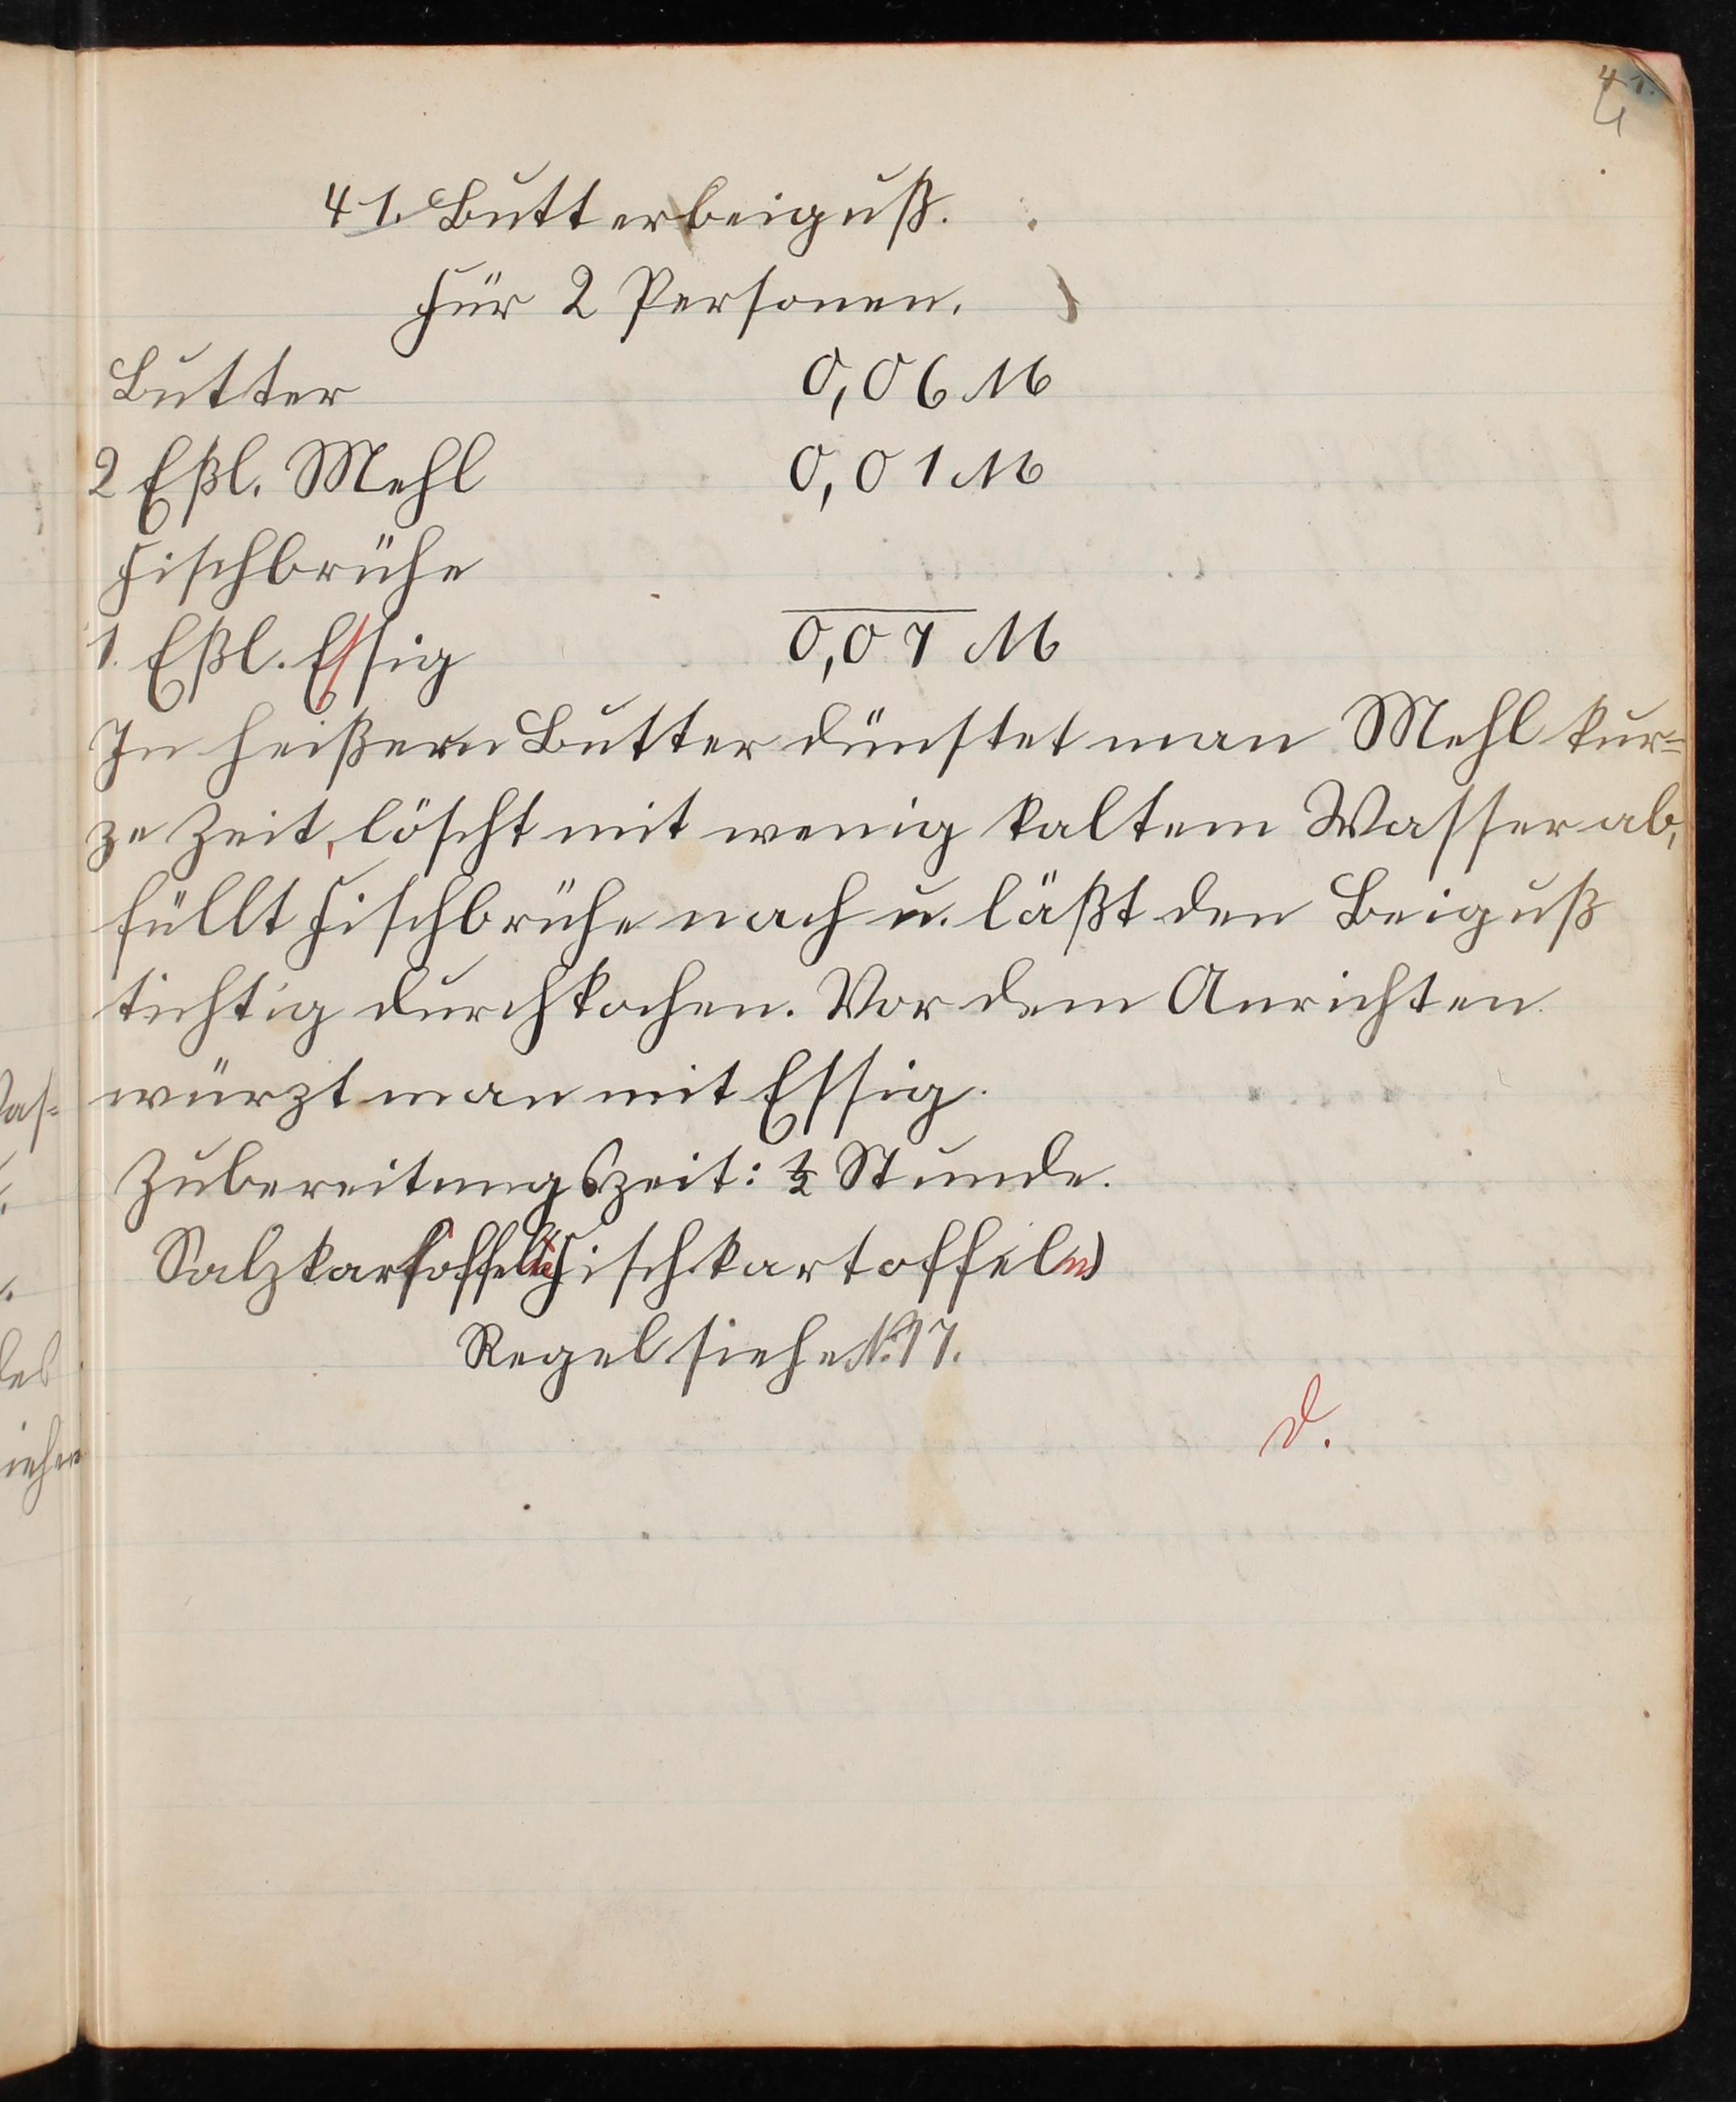 41.
41. Butterbeiguß.
Für 2 Personen.
Butter 0,06 M
2 Eßl. Mehl 0,01 M
Fischbrühe
1. Eßl. Essig 0,07 M
In heißern Butter dünstet man Mehl kur=
ze Zeit, löscht mit wenig kaltem Wasser ab,
füllt Fischbrühe nach u. läßt den Beiguß
tichtig durchkochen. Vor dem Anrichten
würzt man mit Essig.
Zubereitungszeit: ½ Stunde.
Salzkartoffeln (Fischkartoffeln)
Regel siehe N. 17.